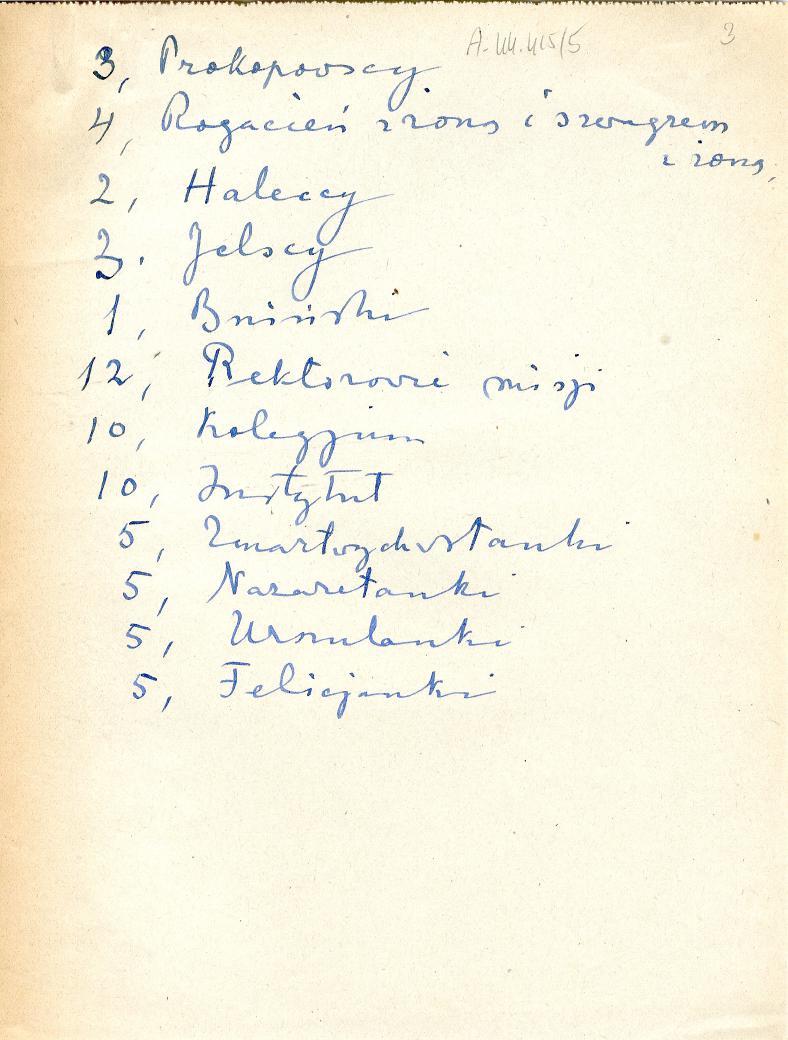 A.44.415/5 3
3, Prokopowscy
4, Rogacień z żoną i szwagrem
z żoną,
2, Haleccy
3. Jelscy
1, Bniński
12, Rektorowie misji
10, Kolegjum
10, Instytut
5, Zmartwychwstanki
5, Nazaretanki
5, Urszulanki
5, Felicjanki